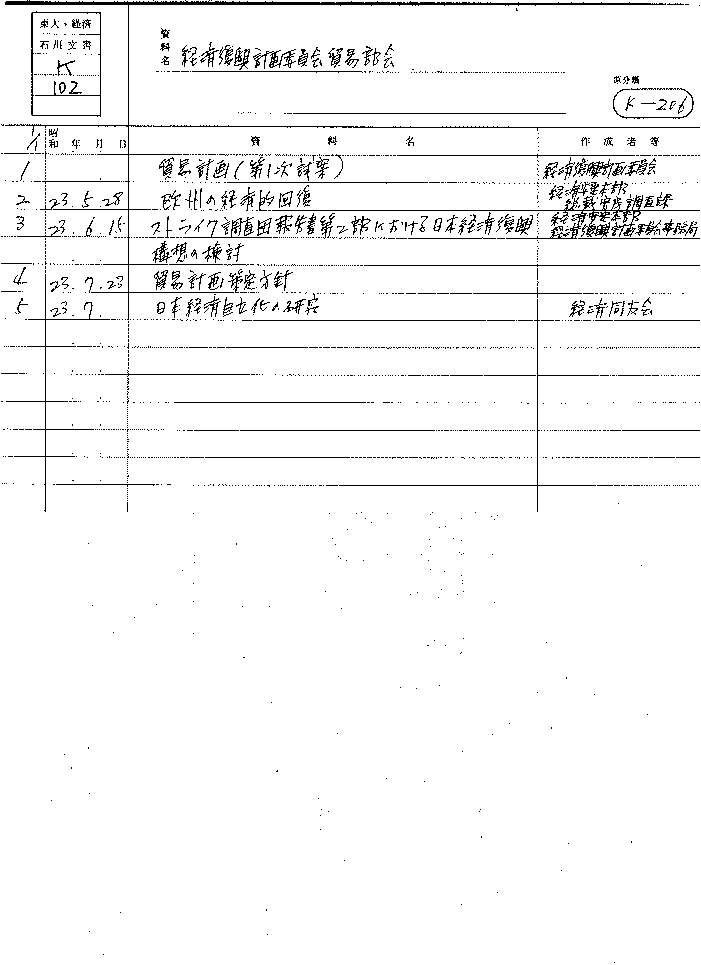 東大・経済
石川文書
K
102
資料名 経済復興計画委員会貿易部会
原分類
K-206
1/1 昭和 年 月 日 資 料 名 作 成 者 等
1 貿易計画(第1次試案) 経済復興計画委員会
2 23. 5. 28 欧州の経済的回復 経済安定本部
総裁官房調査課
3 23. 6. 15 ストライク調査団報告書第二部における日本経済復興 経済安定本部
経済復興計画委員会事務局
構想の検討
4 23. 7. 23 貿易計画策定方針
5 23. 7. 日本経済自立化の研究 経済同友会